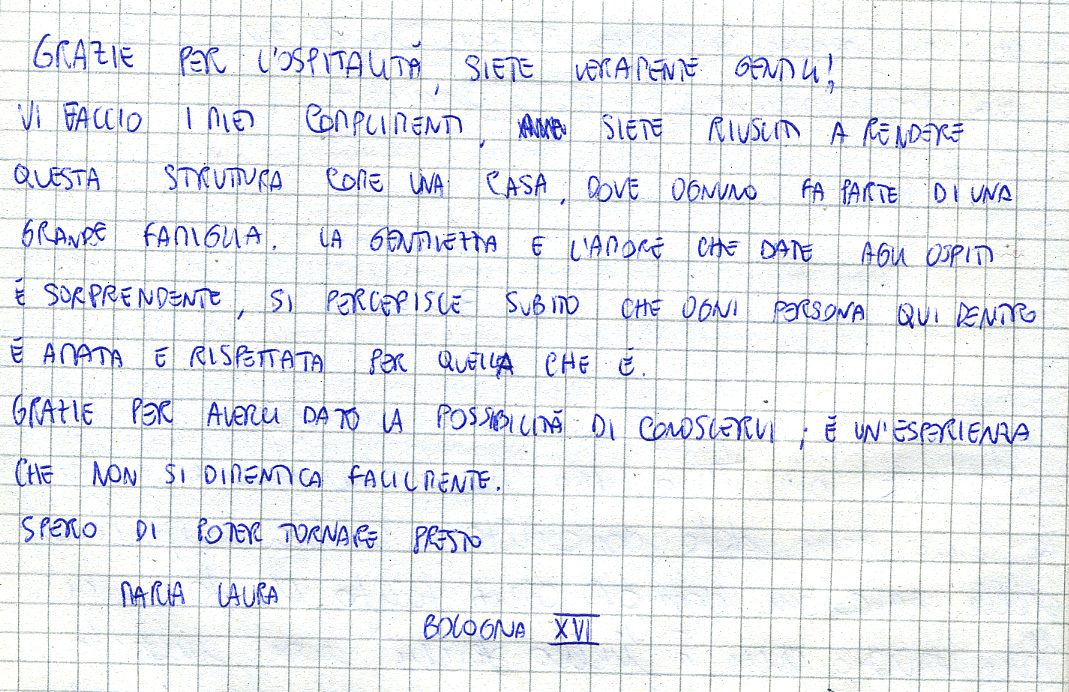 GRAZIE PER L'OSPITALITÀ, SIETE VERAMENTE GENTILI!
VI FACCIO I MIEI COMPLIMENTI, SIETE RIUSCITI A RENDERE
QUESTA STRUTTURA COME UNA CASA, DOVE OGNUNO FA PARTE DI UNA
GRANDE FAMIGLIA. LA GENTILEZZA E L'AMORE CHE DATE AGLI OSPITI
È SORPRENDENTE, SI PERCEPISCE SUBITO CHE OGNI PERSONA QUI DENTRO
È AMATA E RISPETTATA PER QUELLA CHE È.
GRAZIE PER AVERCI DATO LA POSSIBILITÀ DI CONOSCERVI; È UN'ESPERIENZA
CHE NON SI DIMENTICA FACILMENTE.
SPERO DI POTER TORNARE PRESTO
MARIA LAURA
BOLOGNA XVI